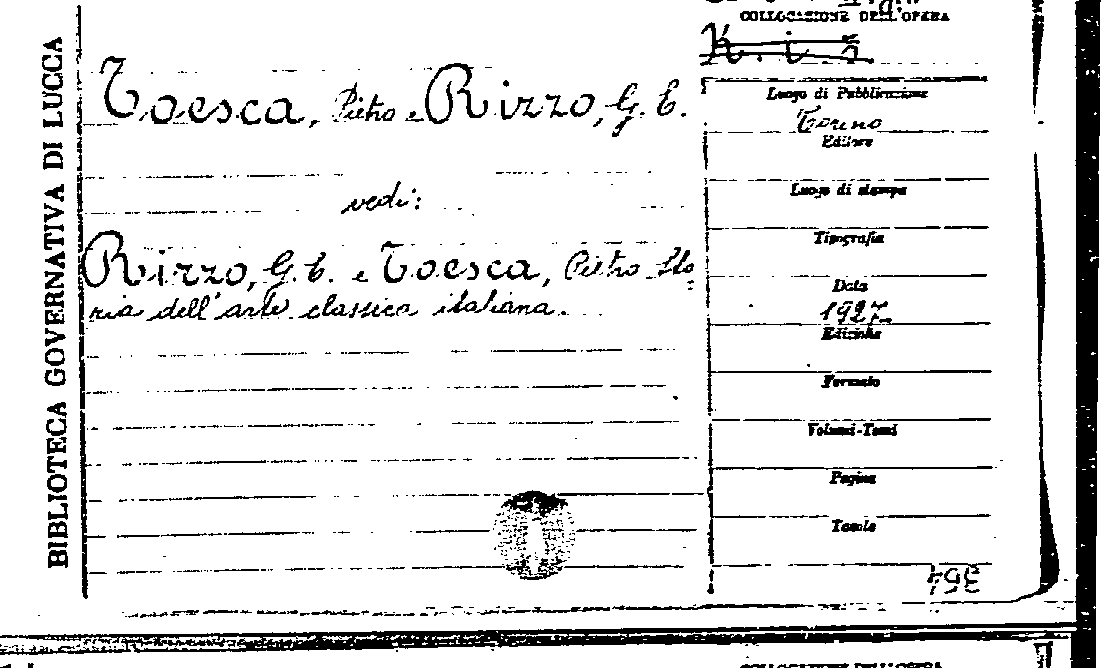 BIBLIOTECA GOVERNATIVA DI LUCCA
COLLOCAZIONE DELL'OPERA
K. i. 5
Toesca, Pietro e Rizzo, G. E.
vedi:
Rizzo, G. E. e Toesca, Pietro Sto
ria dell'arte classica italiana.
Luogo di Pubblicazione
Torino
Editore
Luogo di stampa
Tipografia
Data
1927
Edizione
Formato
Volumi-Tomi
Pagine
Tavole
354
COLLOCAZIONE DELL'OPERA